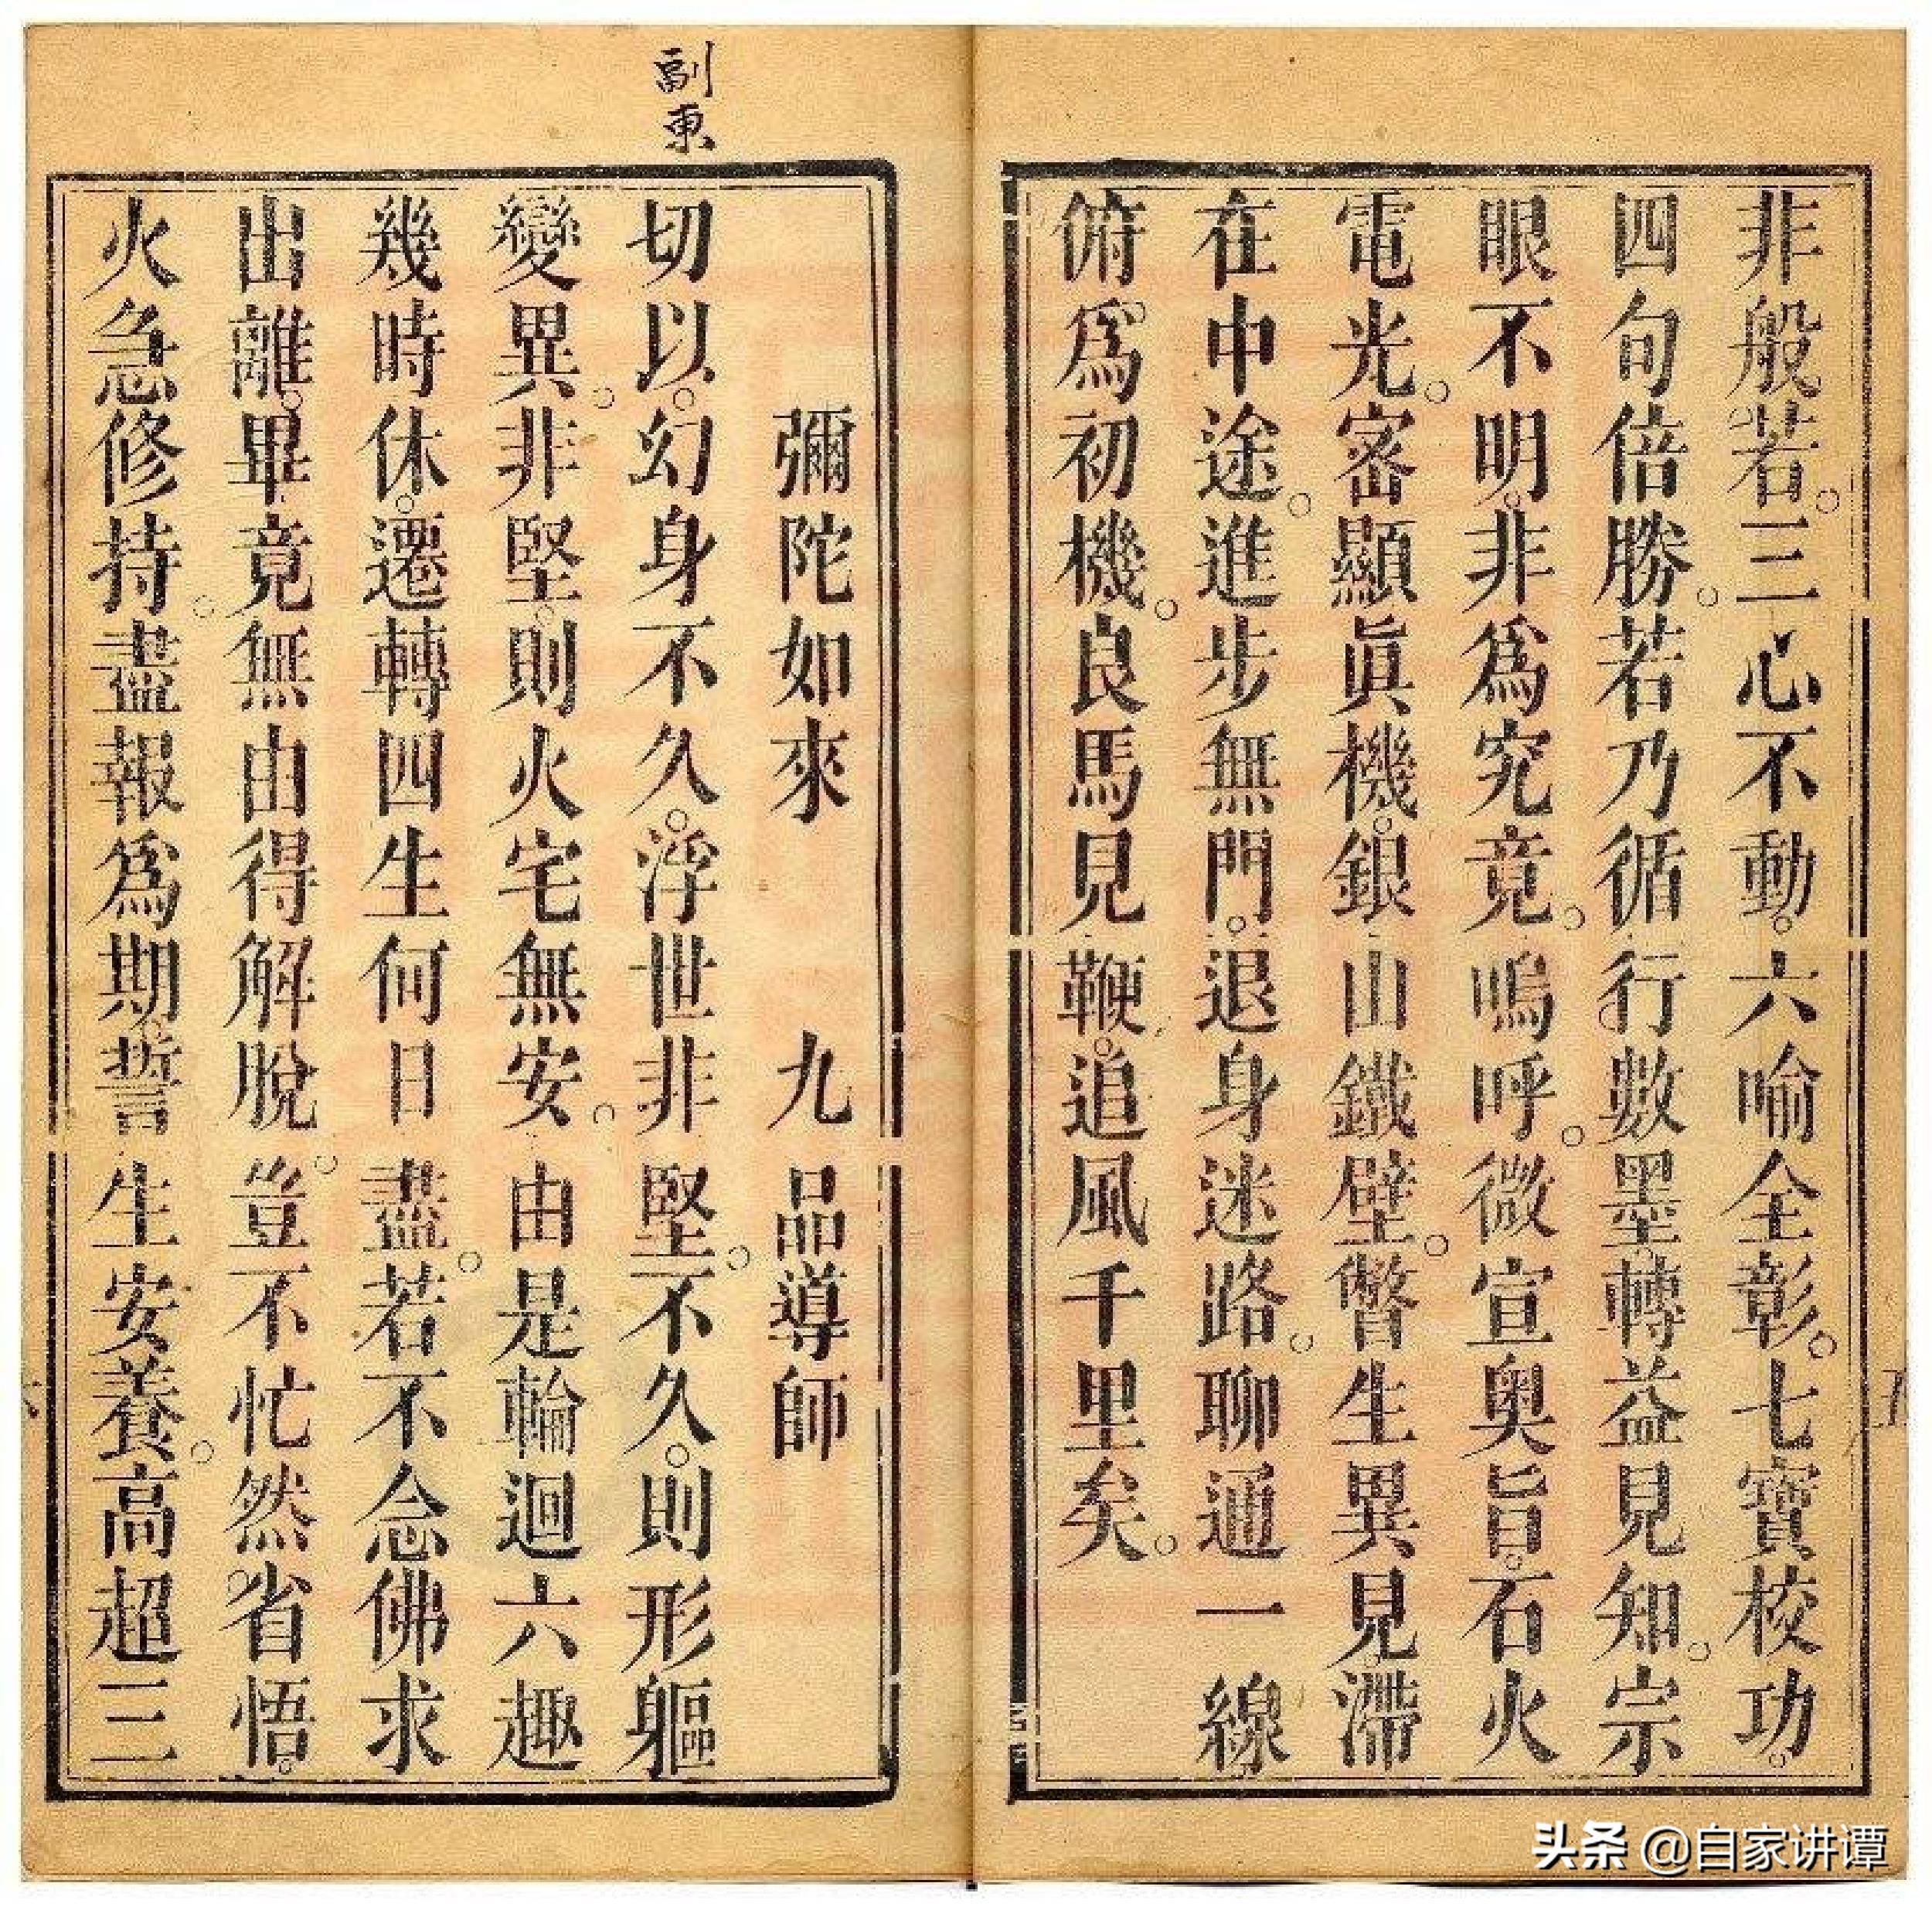 非般若。三心不動。六喻全彰。七寶校功。
四句倍勝。若乃循行數墨。轉益見知。宗
眼不明。非為究竟。嗚呼。微宣奧旨。石火
電光。密顯眞機。銀山鐵壁。瞥生異見。滯
在中途。進步無門。退身迷路。聊通一線
俯為初機。良馬見鞭。追風千里矣。
彌陀如來 九品導師
切以。幻身不久。浮世非堅。不久。則形軀
變異。非堅。則火宅無安。由是輪迴六趣
幾時休。遷轉四生何日盡。若不念佛求
出離。畢竟無由得解脫。豈不忙然省悟。
火急修持。盡報為期。誓生安養。高超三
副東
五
头条 @自家讲谭